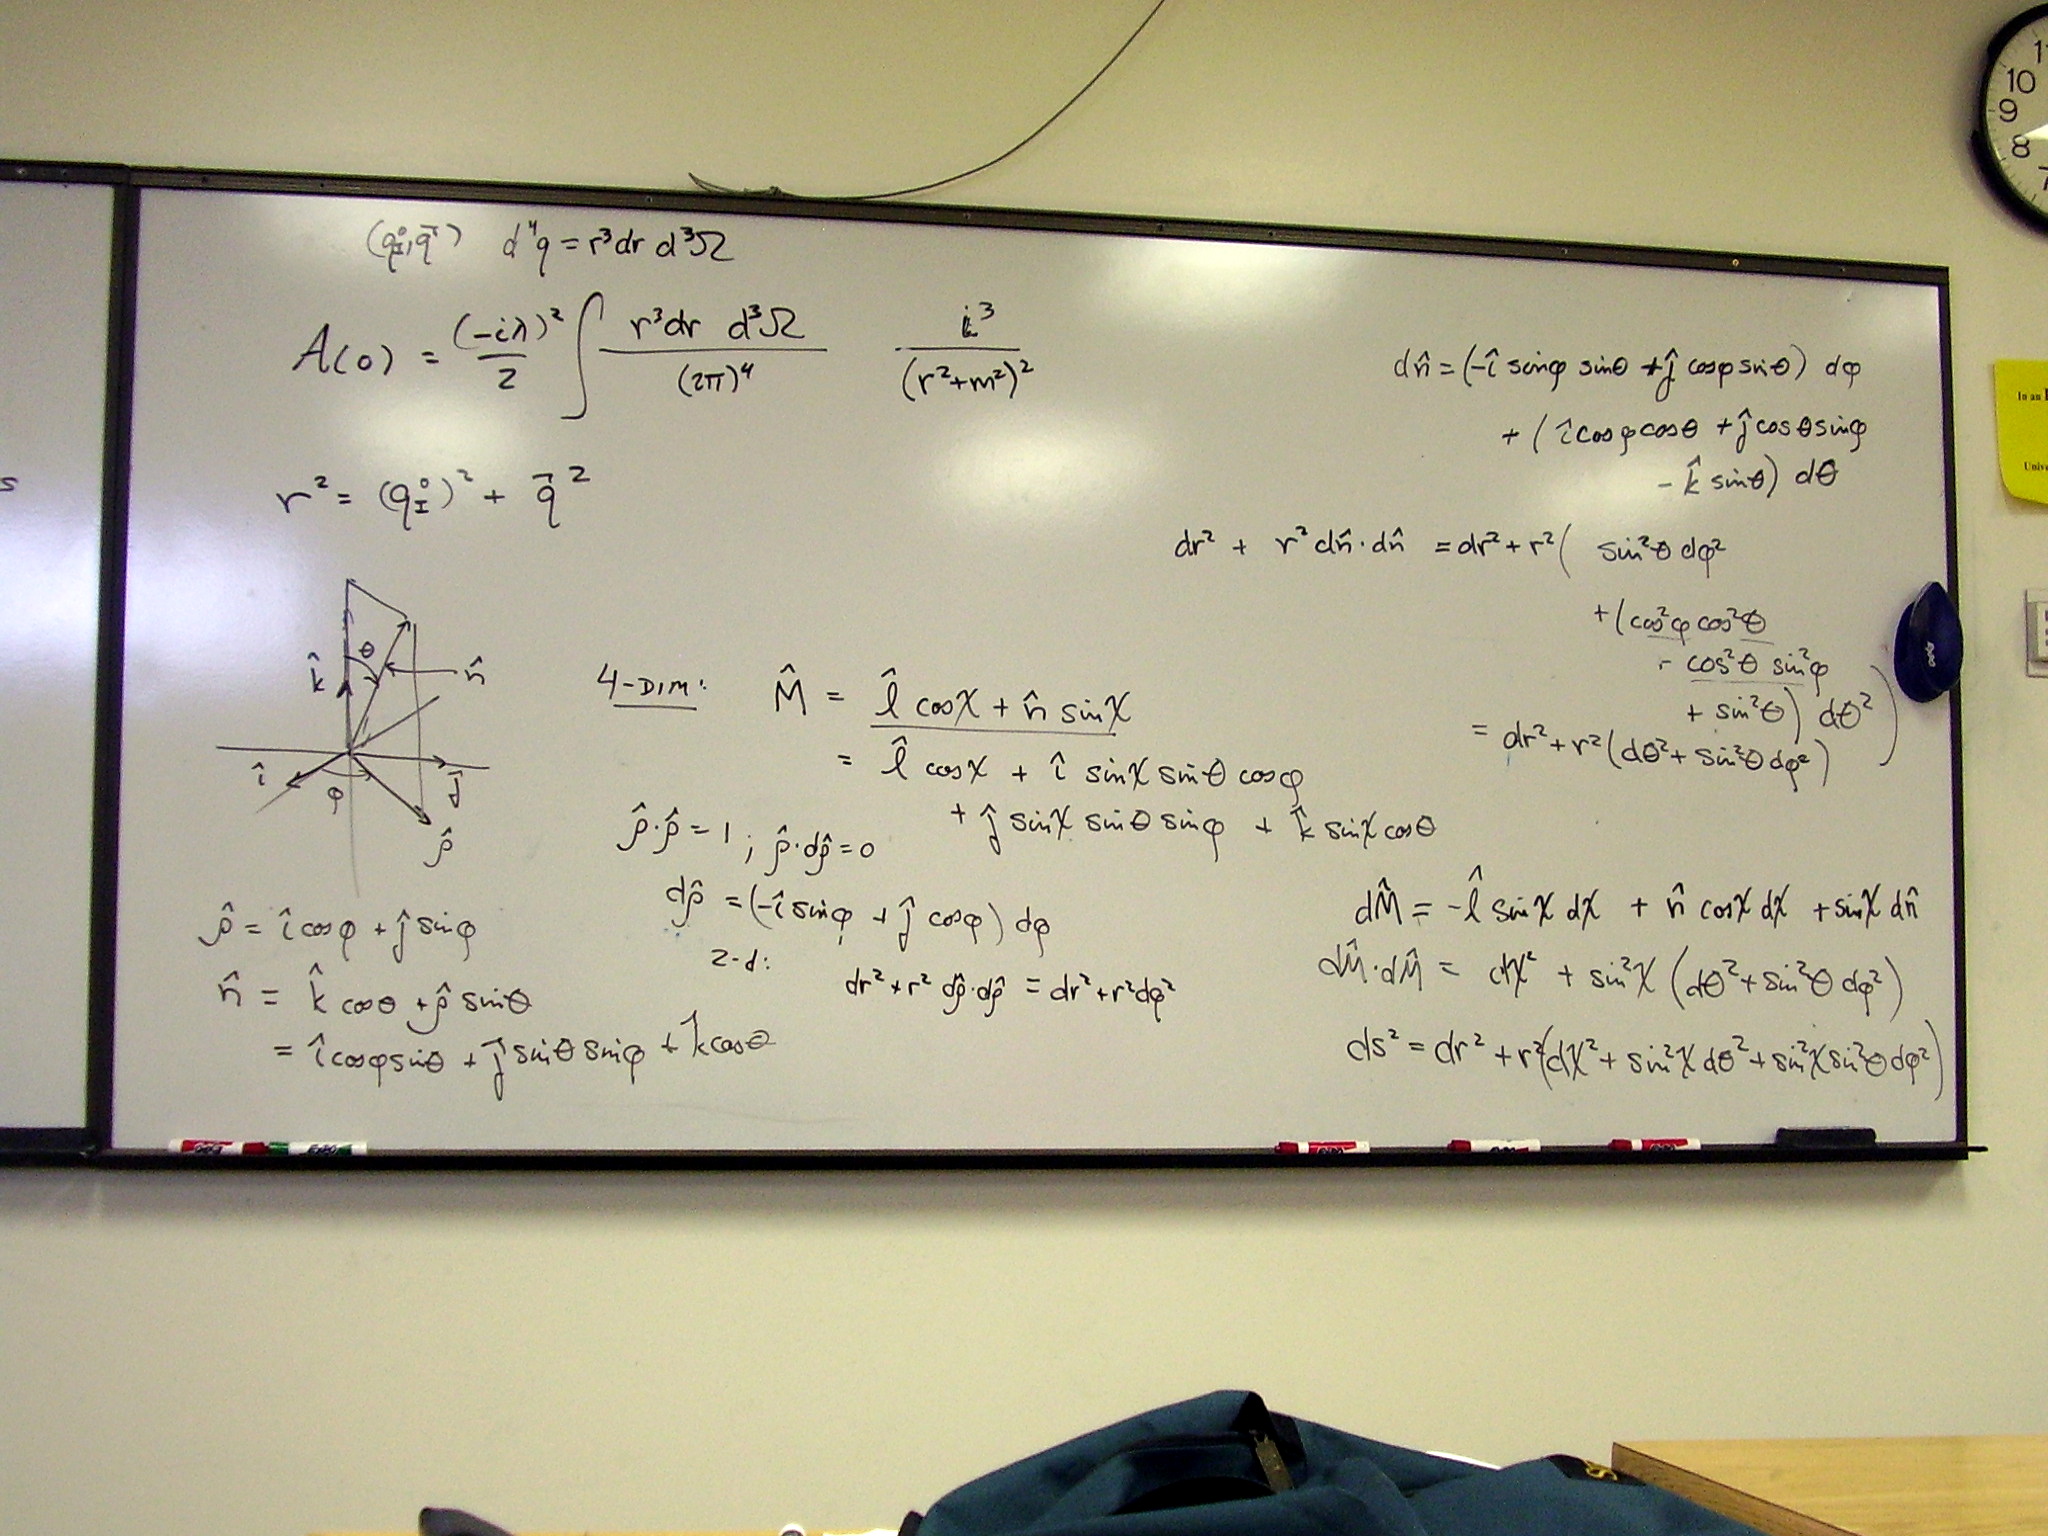 (q_I^0, q⃗) d⁴q = r³dr d³Ω
A(0) = (-iλ)²/2 ∫ r³dr d³Ω/(2π)⁴ i³/(r²+m²)²
r² = (q_I^0)² + q⃗²
k̂ θ n̂
î φ ĵ
ρ̂
ρ̂ = î cosφ + ĵ sinφ
n̂ = k̂ cosθ + ρ̂ sinθ
= î cosφ sinθ + ĵ sinθ sinφ + k̂ cosθ
4-DIM: M̂ = l̂ cosχ + n̂ sinχ
= l̂ cosχ + î sinχ sinθ cosφ
+ ĵ sinχ sinθ sinφ + k̂ sinχ cosθ
ρ̂·ρ̂ = 1 ; ρ̂·dρ̂ = 0
dρ̂ = (-î sinφ + ĵ cosφ) dφ
2-d:
dr² + r² dρ̂·dρ̂ = dr² + r²dφ²
dn̂ = (-î sinφ sinθ + ĵ cosφ sinθ) dφ
+ (î cosφ cosθ + ĵ cosθ sinφ
- k̂ sinθ) dθ
dr² + r² dn̂·dn̂ = dr² + r²( sin²θ dφ²
+ (cos²φ cos²θ
- cos²θ sin²φ
+ sin²θ) dθ² )
= dr² + r²(dθ² + sin²θ dφ²)
dM̂ = -l̂ sinχ dχ + n̂ cosχ dχ + sinχ dn̂
dM̂·dM̂ = dχ² + sin²χ (dθ² + sin²θ dφ²)
ds² = dr² + r²(dχ² + sin²χ dθ² + sin²χ sin²θ dφ²)
s
10
9
8
In an
EXPO